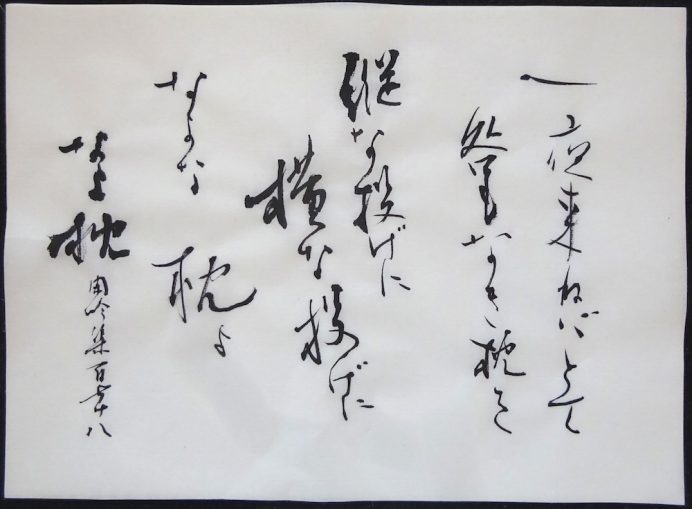 一夜来ねばとて
咎もなき枕を
縦な投げに
横な投げに
なよな 枕よ
なよ枕
閑吟集百七十八